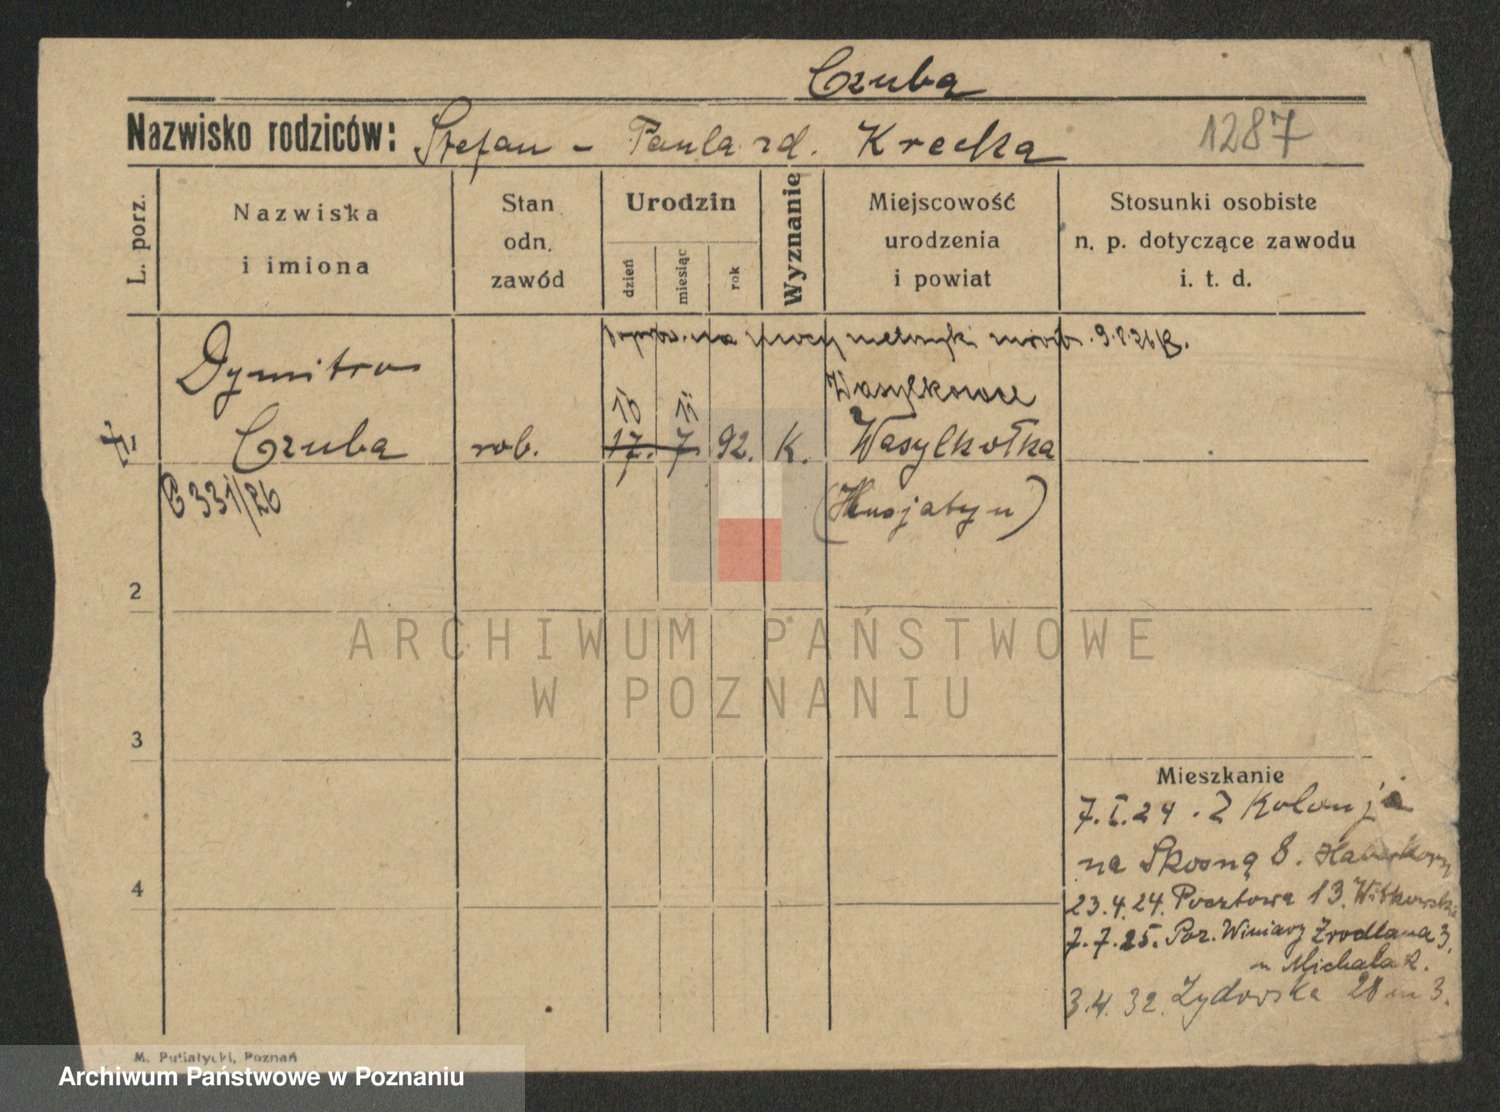 Czuba
Nazwisko rodziców: Stefan - Paula zd. Krecka
1287
L. porz.
Nazwiska
i imiona
Stan
odn.
zawód
Urodzin
dzień
miesiąc
rok
Wyznanie
Miejscowość
urodzenia
i powiat
Stosunki osobiste
n. p. dotyczące zawodu
i. t. d.
na mocy metryki 9.8.26
Dymitro
Wasylkowce
Czuba
rob.
17. 7. 92.
K.
Wasylkołka
(Husjatyn)
G 331/26
2
3
4
Mieszkanie
7.I.24. z Kolonja
na Skosną 8.
23.4.24. Pocztowa 13. Witkowski
7.7.25. Poz. Winiary Zrodlana 3.
u Michalak.
3.4.32. Zydowska 28 m 3.
M. Putiatycki, Poznań
ARCHIWUM PAŃSTWOWE
W POZNANIU
Archiwum Państwowe w Poznaniu